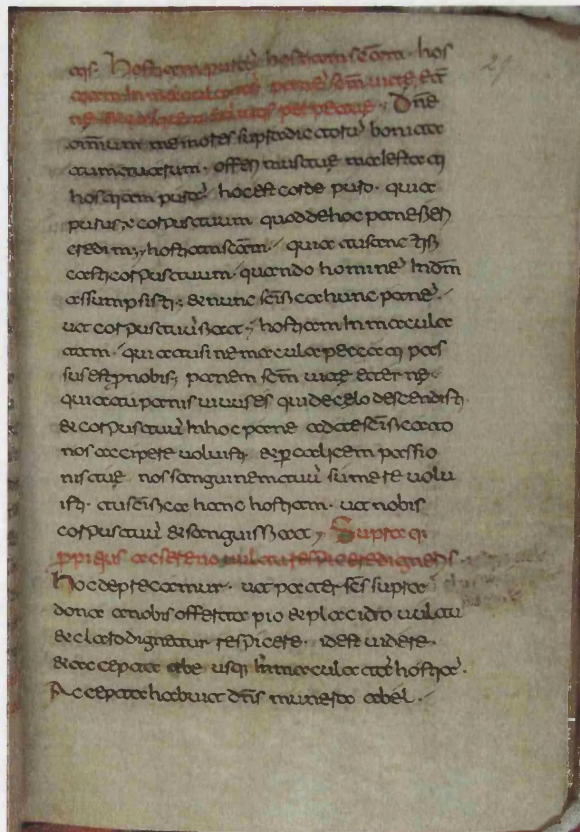 cis. hostiam puram hostiam scam. hos
tiam inmaculatam panem scm uitę ęter
nę & calicem salutis perpetuę. Dne
omnium memores supradictoru bonita
tum tuarum. offerimus tuę maiestati
hostiam pura hoc est corde puro. quia
purus, & corpus tuum quod de hoc pane ess&
credimus, hostiam scam. quia tu sancti
casti corpus tuum quando homine in dm
assumpsisti; & nunc scifica hunc pane.
ut corpus tuu fiat; hostiam inmacula
tam. quia tu sine macula peccati pas
sus es p nobis; panem scm uitę ęternę.
quia tu panis uiuus es qui de celo descendisti.
& corpus tuu in hoc pane a te scificato
nos accipere uoluisti. & p calicem passio
nis tuę nos sanguinem tuu sumere uolu
isti. tu scifica hanc hostiam. ut nobis
corpus tuu & sanguis fiat, Supra q
ppitius ac sereno uultu respicere digneris.
hoc deprecamur. ut pater scs supra
dona a nobis offerta pio & placido uultu
& claro dignatur respicere. idest uidere.
& accepta habe usq inmaculata hostia.
Accepta habuit dns munera abel.
29